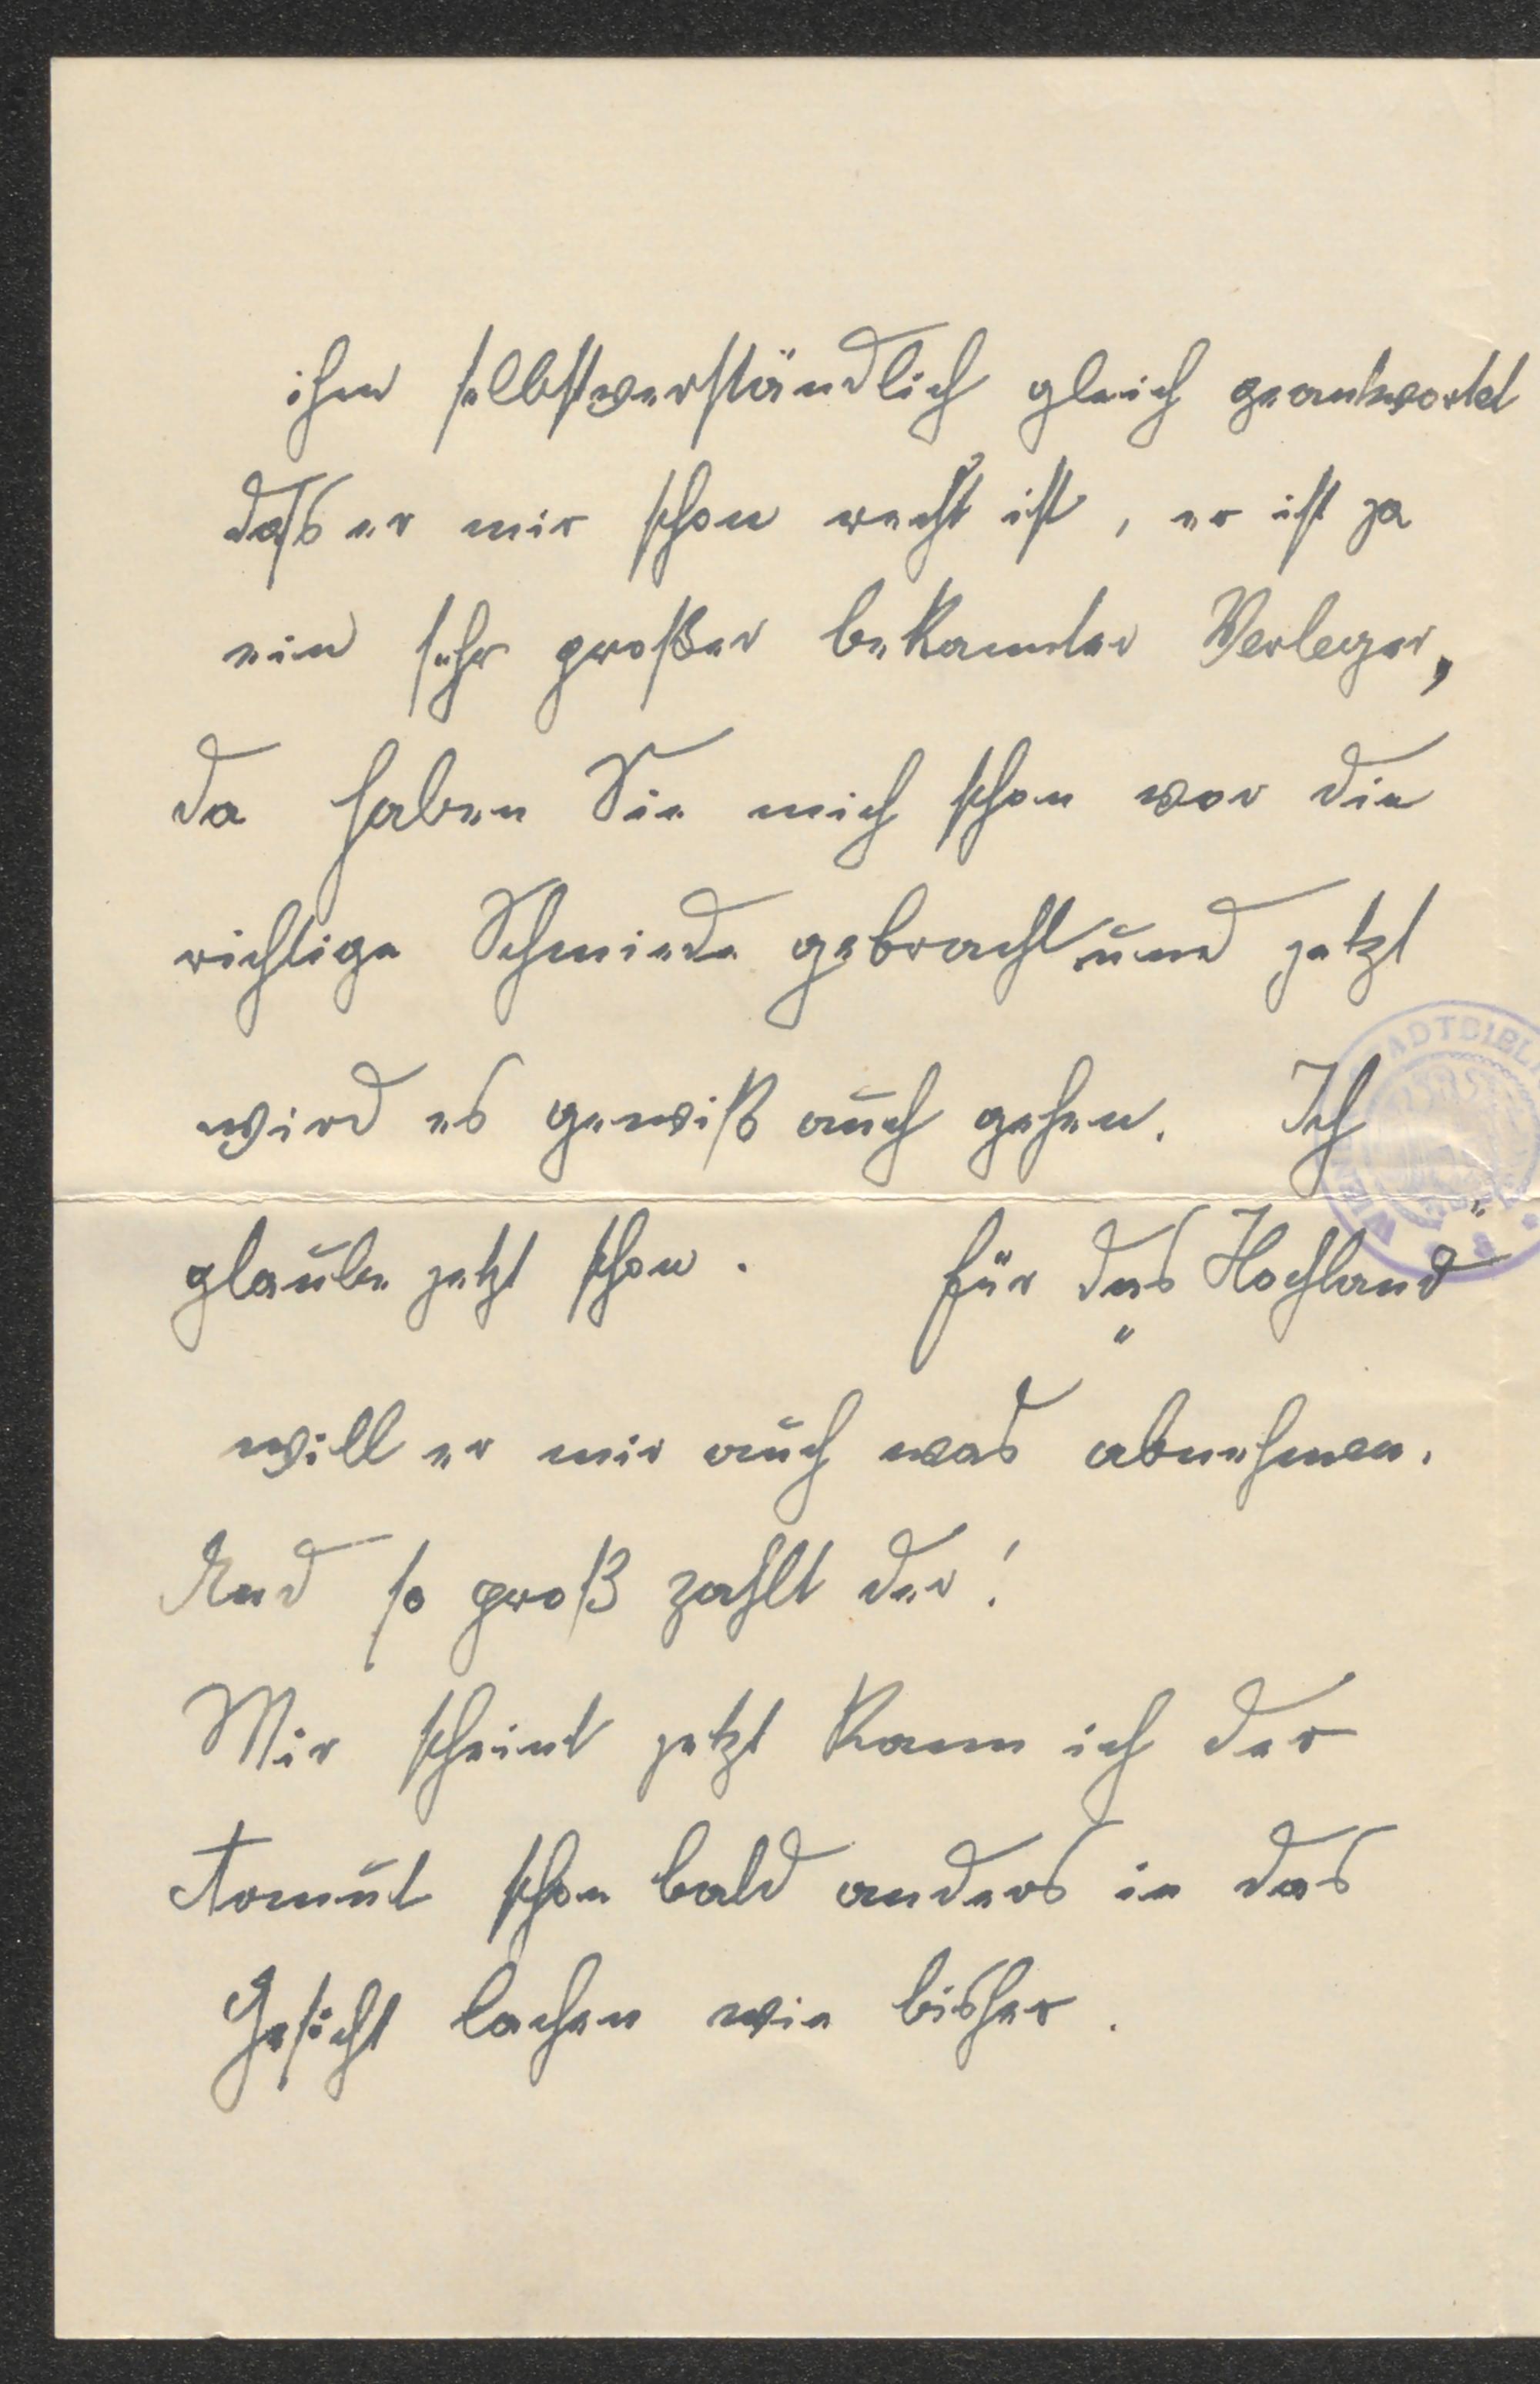 ihm selbstverständlich gleich geantwortet
dass er mir schon recht ist, er ist ja
ein sehr großer bekannter Verleger,
da haben Sie mich schon vor die
richtige Schmiede gebracht und jetzt
wird es gewiß auch gehen. Ich
glaube jetzt schon. für das „Hochland“
will er mir auch was abnehmen.
Und so groß zahlt der!
Mir scheint jetzt kann ich der
Armut schon bald anders in das
Gesicht lachen wie bisher.